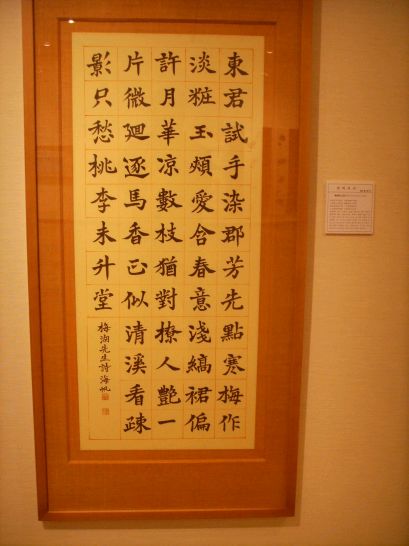 東君試手染郡芳先點寒梅作
淡粧玉頰愛含春意淺縞裙偏
許月華凉數枝猶對撩人艶一
片微廻逐馬香正似清溪看疎
影只愁桃李未升堂
梅湖先生詩 海帆